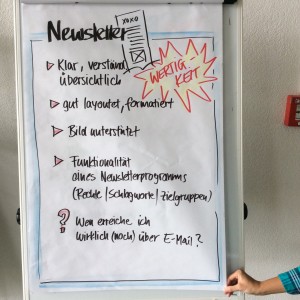 Newsletter
xoxo
Klar, verständ
übersichtlich
WERTIG-
KEIT
gut layoutet, formatiert
Bild unterstützt
Funktionalität
eines Newsletterprogramms
(Rechte | Schlagworte | Zielgruppen)
? Wen erreiche ich
wirklich (noch) über E-Mail?